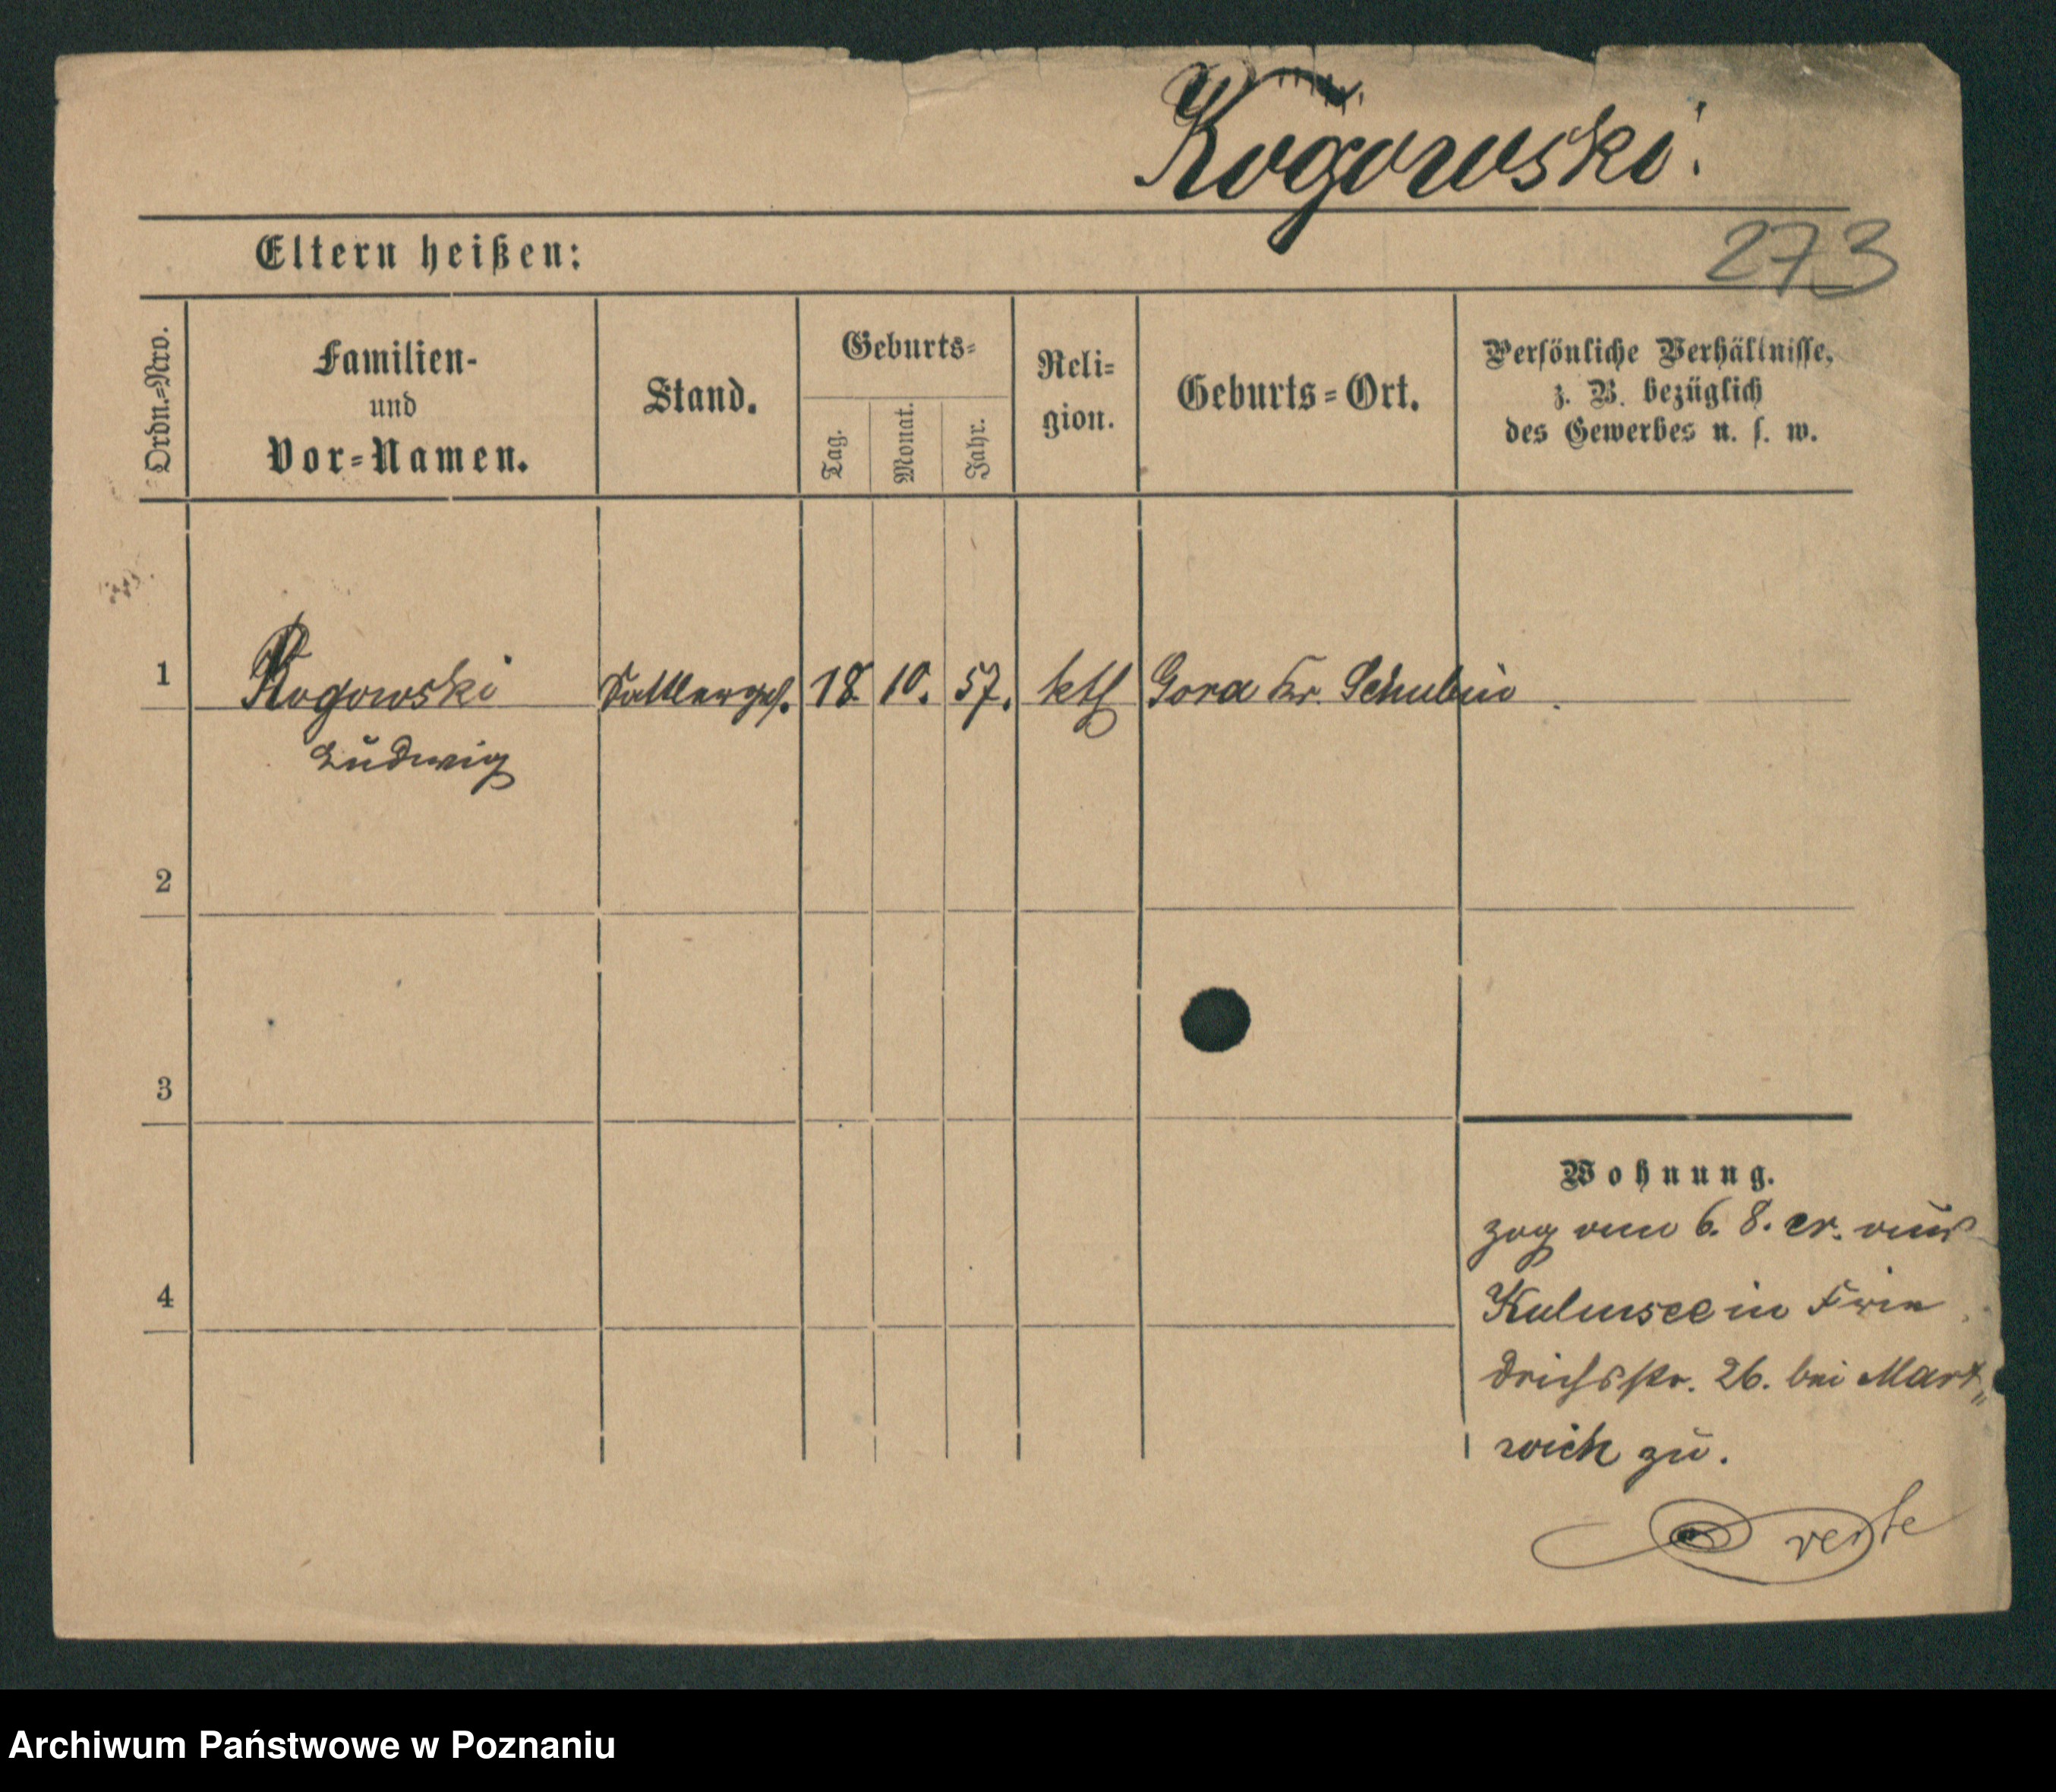 Rogowski.
273
Eltern heißen:
Ordn.=Nro.
Familien-
und
Vor=Namen.
Stand.
Geburts=
Tag.
Monat.
Jahr.
Reli=
gion.
Geburts=Ort.
Persönliche Verhältnisse,
z. B. bezüglich
des Gewerbes u. s. w.
1 Rogowski Sattlerges. 18 10. 57. kth Gora Kr. Schubin
Ludwig
2
3
4
Wohnung.
zog am 6. 8. cr. aus
Kulmsee in Frie
drichsstr. 26. bei Mart„
wich zu.
verte
Archiwum Państwowe w Poznaniu